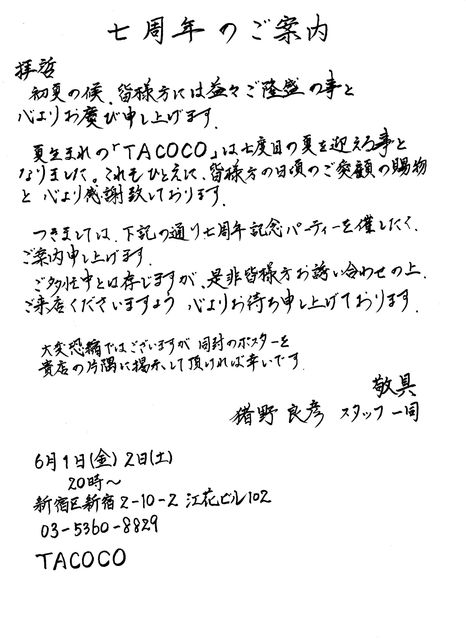 七周年のご案内
拝啓
初夏の候、皆様方には益々ご隆盛の事と
心よりお慶び申し上げます。
夏生まれの「TACOCO」は七度目の夏を迎える事と
なりました。これもひとえに、皆様方の日頃のご愛顧の賜物
と心より感謝致しております。
つきましては、下記の通り七周年記念パーティーを催したく、
ご案内申し上げます。
ご多忙中とは存じますが、是非皆様方お誘い合わせの上、
ご来店くださいますよう 心よりお待ち申し上げております。
大変恐縮ではございますが 同封のポスターを
貴店の片隅に掲示して頂ければ幸いです。
敬具
猪野 良彦 スタッフ一同
6月1日(金) 2日(土)
20時〜
新宿区新宿2-10-2 江花ビル102
03-5360-8829
TACOCO